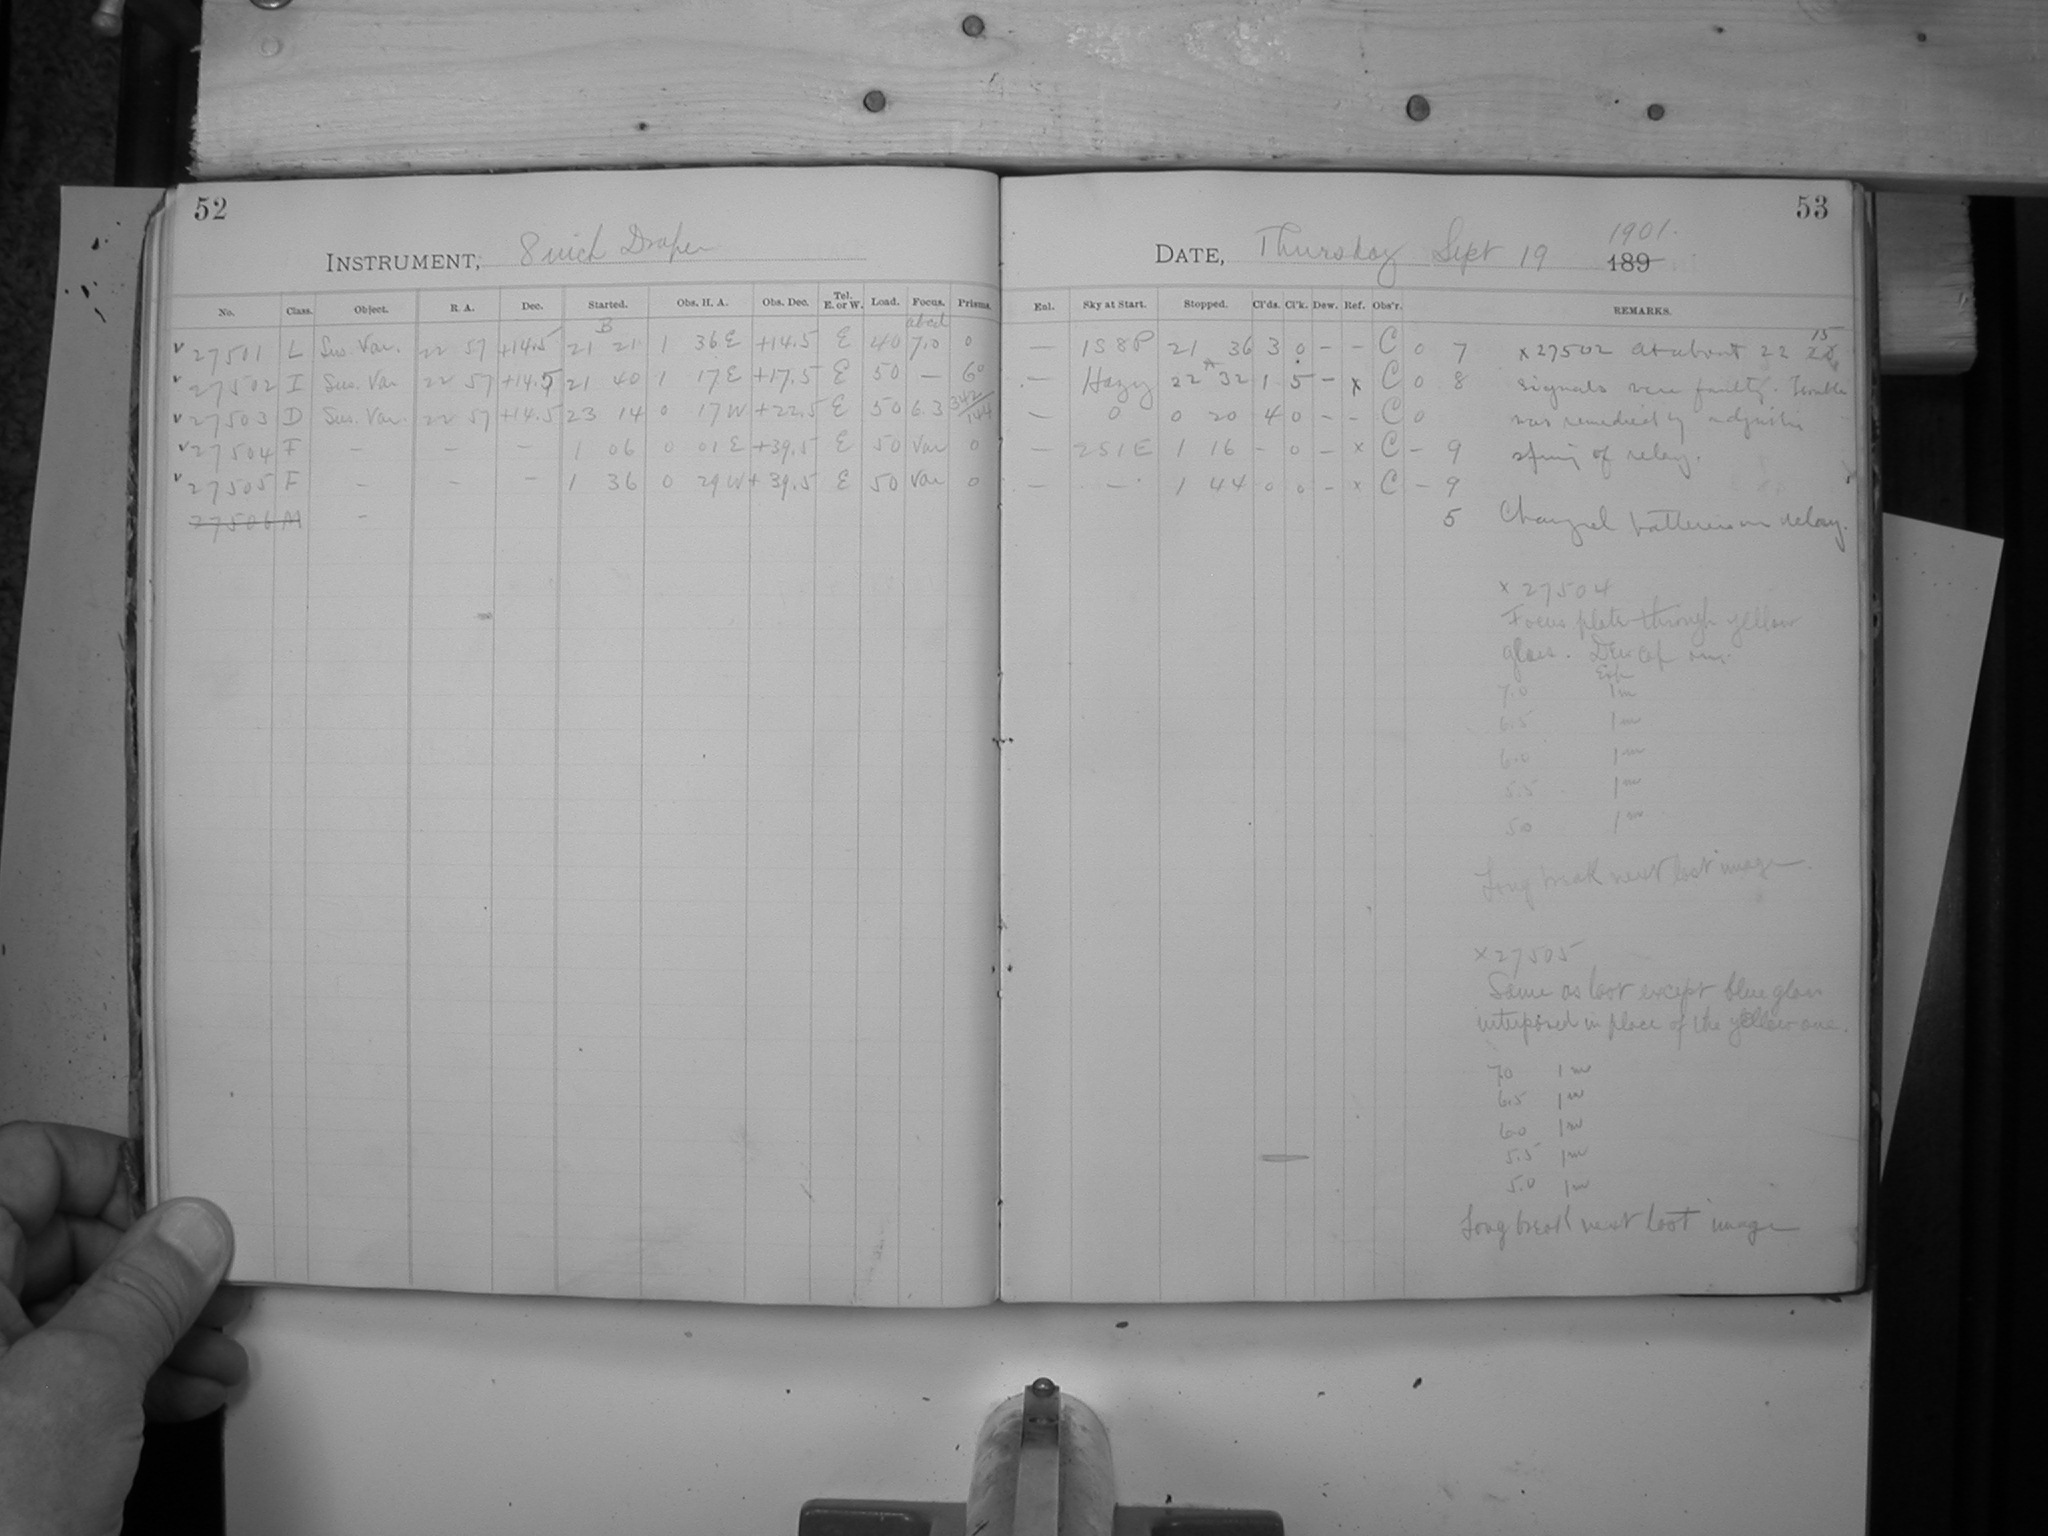 52
INSTRUMENT, 8 inch Draper
No. Class. Object. R. A. Dec. Started. Obs. H. A. Obs. Dec. Tel. E. or W. Load. Focus. Prisms.
B abcd
v 27501 L Sus. Var. 22 57 +14.5 21 21 1 36 E +14.5 E 40 7.0 0
v 27502 I Sus. Var 22 57 +14.5 21 40 1 17 E +17.5 E 50 — 6°
v 27503 D Sus. Var. 22 57 +14.5 23 14 0 17 W +22.5 E 50 6.3
v 27504 F — — — 1 06 0 01 E +39.5 E 50 Var 0
v 27505 F — — — 1 36 0 29 W +39.5 E 50 Var 0
27506 M —
53
DATE, Thursday Sept 19 1901.
189
Enl. Sky at Start. Stopped. Cl'ds. Cl'k. Dew. Ref. Obs'r. REMARKS.
— 1S8P 21 36 3 0 - - C 0 7
— Hazy 22 32 1 5 - x C 0 8
— 0 0 20 4 0 - - C 0
— 2S1E 1 16 - 0 - x C - 9
— — 1 44 0 0 - x C - 9
5
x 27502 At about 22 15
signals were faulty. Trouble
was remedied by adjusting
spring of relay.
Changed batteries on relay.
x 27504
Focus plate through yellow
glass. Dew cap on.
Exp
7.0 1m
6.5 1m
6.0 1m
5.5 1m
5.0 1m
Long break next last image.
x 27505
Same as last except blue glass
interposed in place of the yellow one.
7.0 1m
6.5 1m
6.0 1m
5.5 1m
5.0 1m
Long break next last image